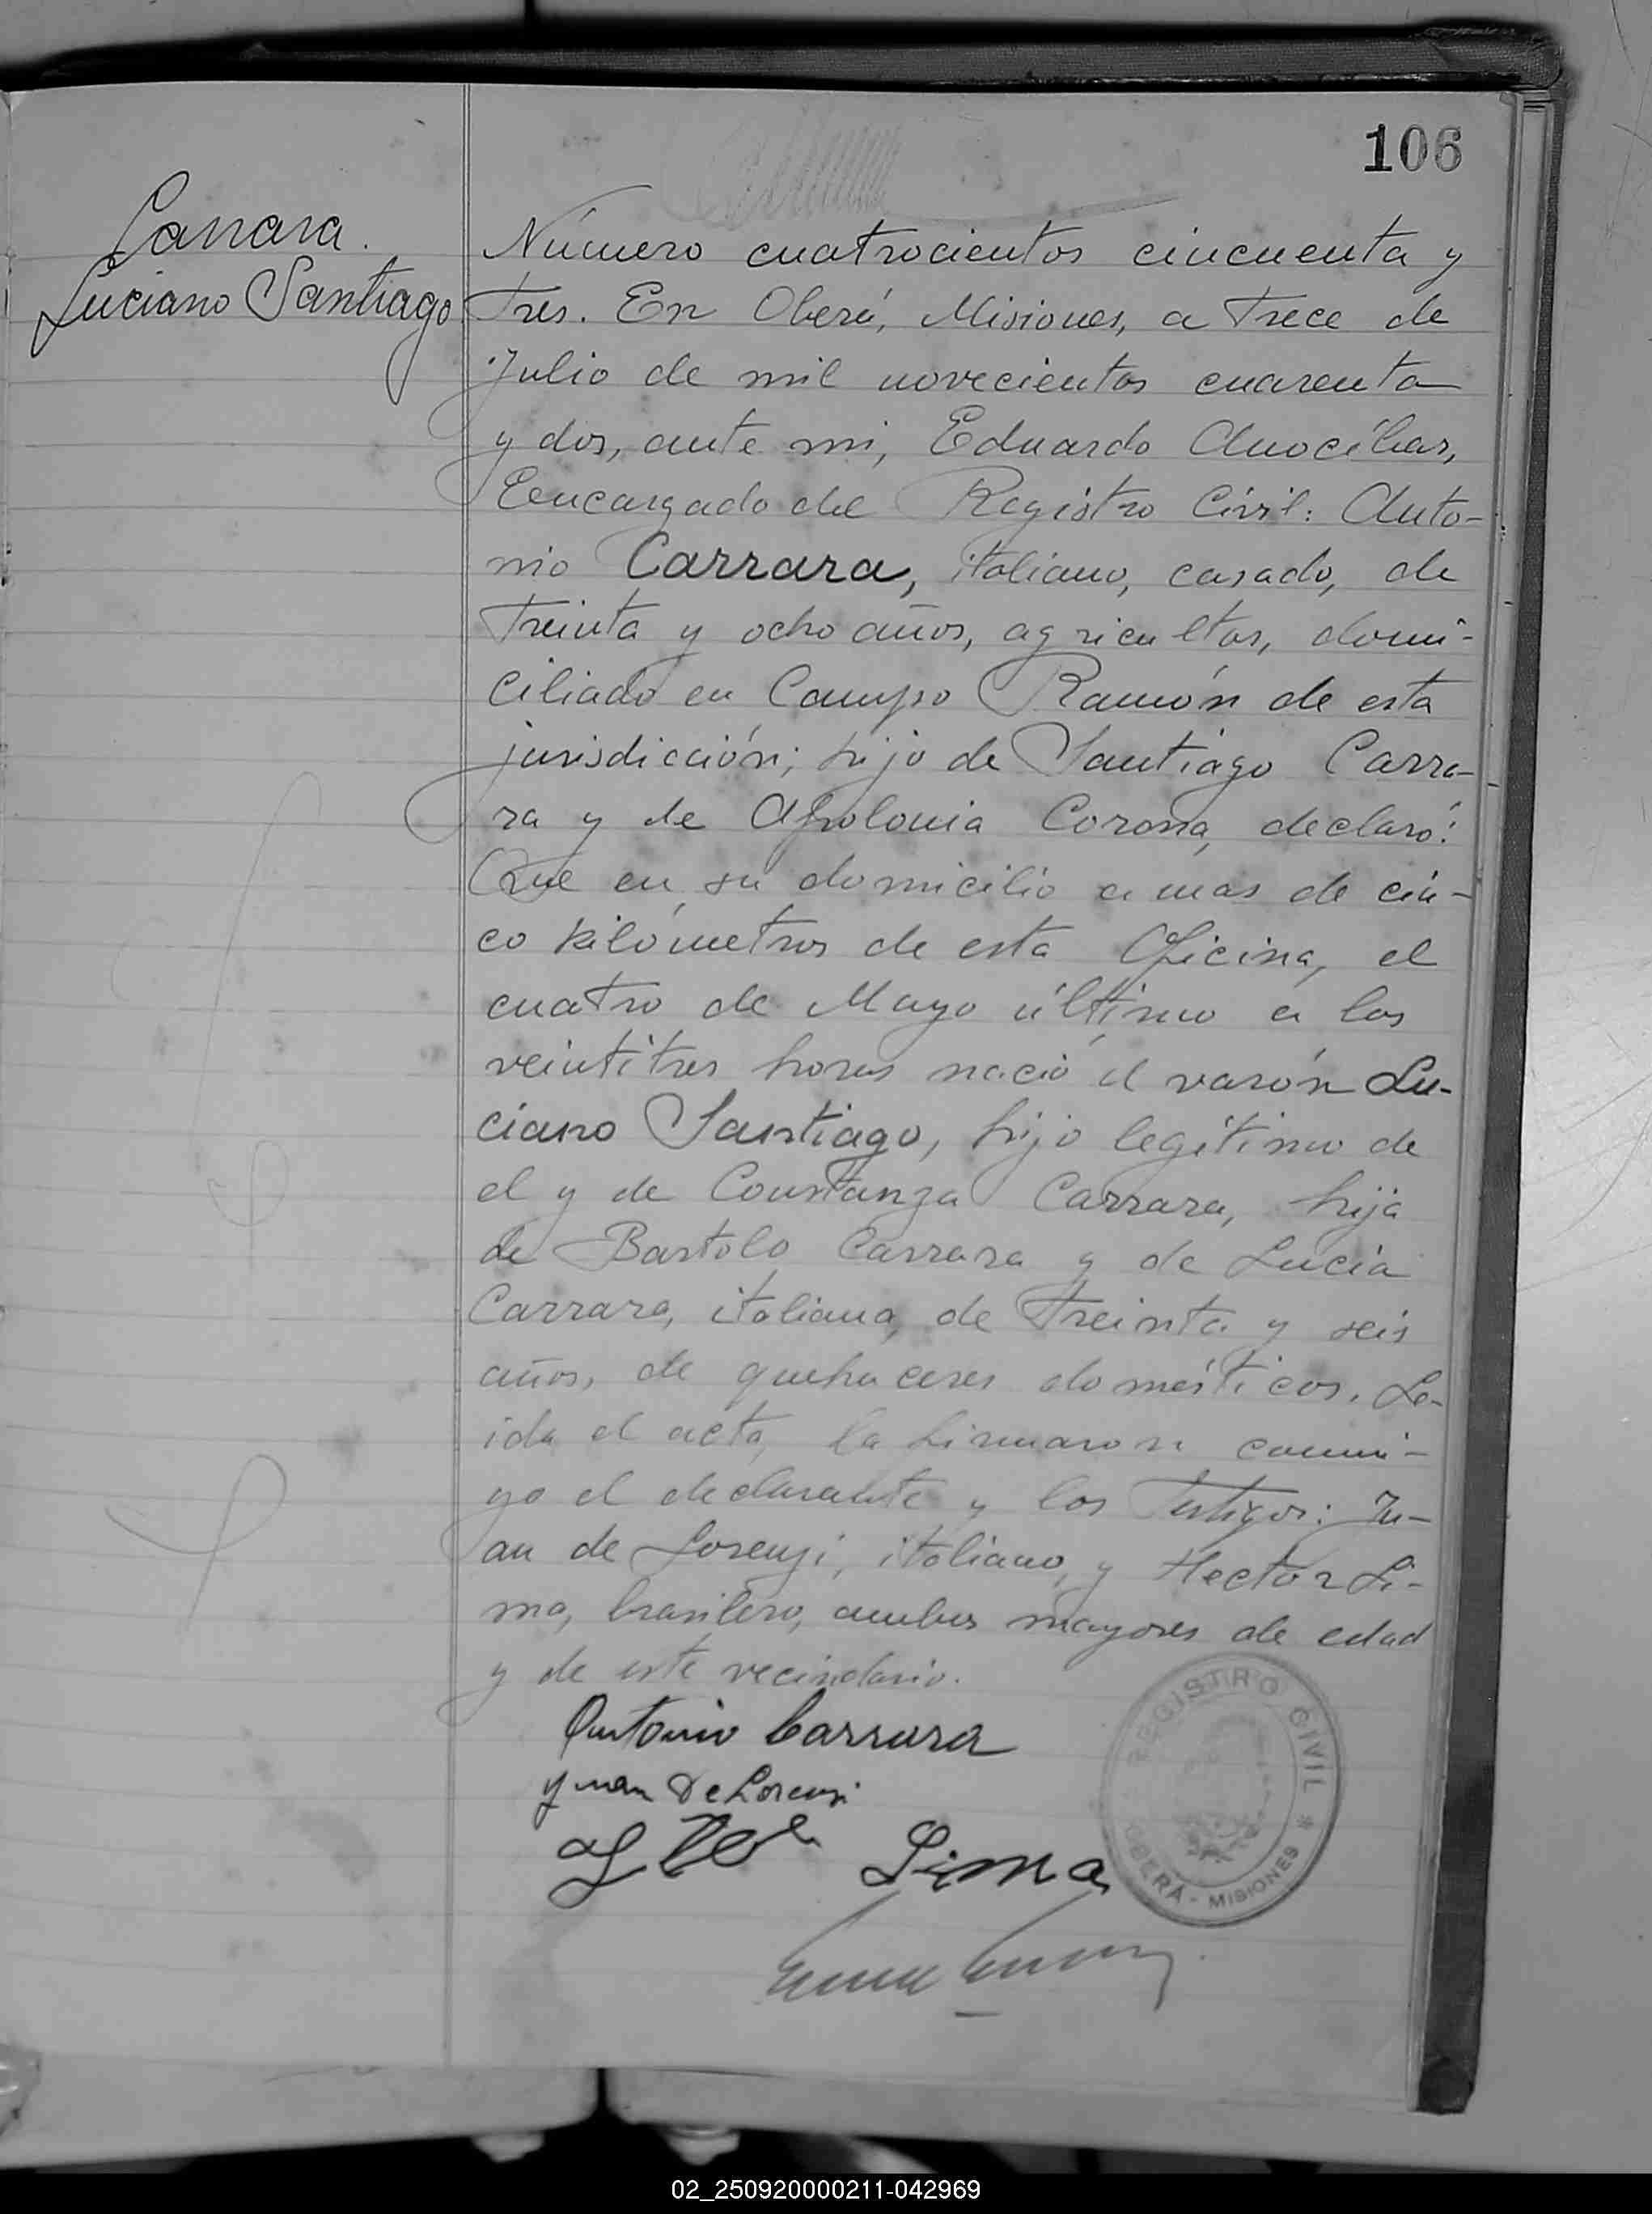 106
Carrara.
Luciano Santiago
Número cuatrocientos cincuenta y
tres. En Oberá, Misiones, a trece de
Julio de mil novecientos cuarenta
y dos, ante mi, Eduardo
Eencargado del Registro Civil: Anto-
nio Carrara, italiano, casado, de
treinta y ocho años, agricultor, domi-
ciliado en Campo Ramón de esta
jurisdicción; hijo de Santiago Carra-
ra y de Apolonia Corona, declaró:
Que en su domicilio a mas de cin-
co kilómetros de esta Oficina, el
cuatro de Mayo último a las
veintitres horas nació el varón Lu-
ciano Santiago, hijo legítimo de
el y de Constanza Carrara, hija
de Bartolo Carrara y de Lucía
Carrara, italiana, de treinta y seis
años, de quehaceres domésticos. Le-
ida el acta, la firmaron conmi-
go el declarante y los testigos: Ju-
an de Lorenzi, italiano, y Hector Li-
ma, brasilero, ambos mayores de edad
y de este vecindario.
Antonio Carrara
Juan De Lorenzi
Lima
REGISTRO CIVIL
OBERÁ - MISIONES
02_250920000211-042969